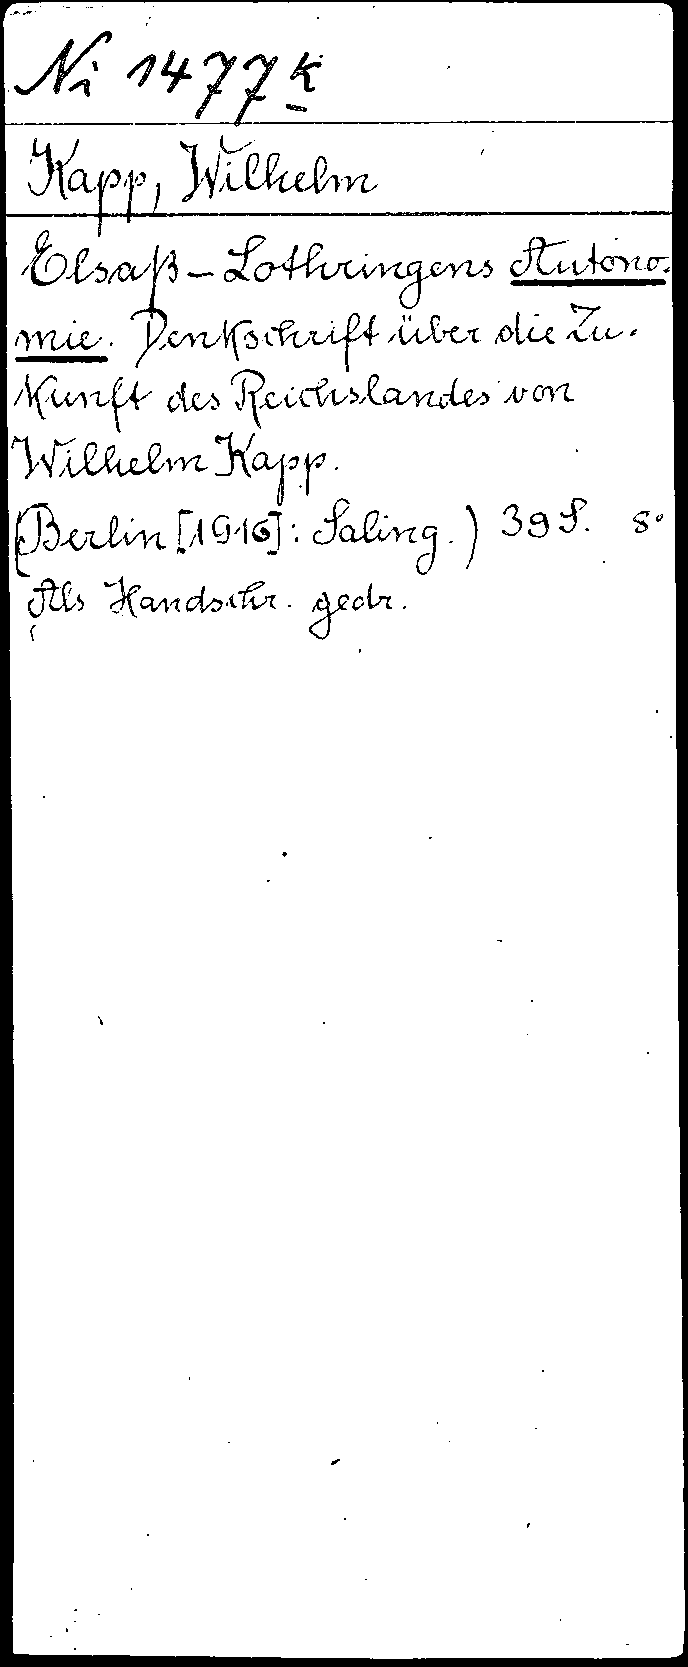 Ni 1477 k
Kapp, Wilhelm
Elsaß-Lothringens Autono-
mie. Denkschrift über die Zu-
kunft des Reichslandes von
Wilhelm Kapp.
(Berlin [1916]: Saling.) 39 S. 8°
Als Handschr. gedr.